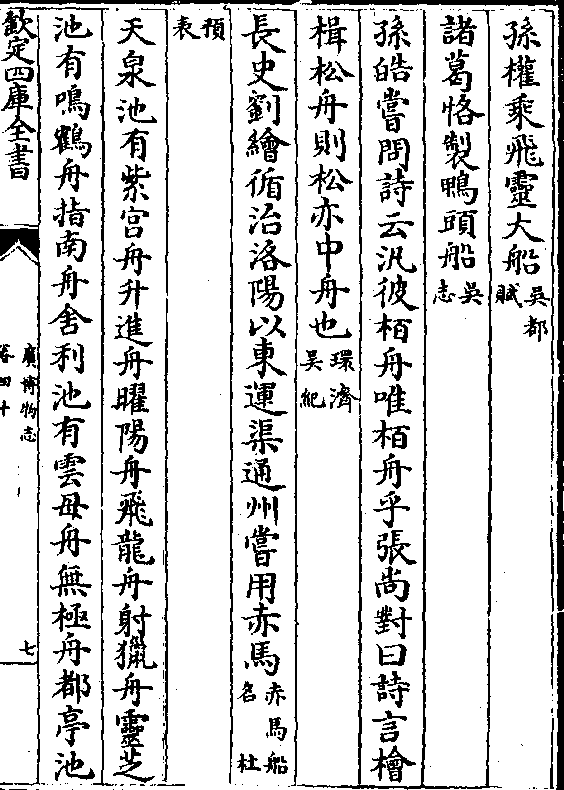 孫權乘飛靈大船吳都賦
諸葛恪製鴨頭船吳志
孫皓嘗問詩云汎彼栢舟唯栢舟乎張尚對曰詩言檜
楫松舟則松亦中舟也環濟吳紀
長史劉繪循治洛陽以東運渠通州嘗用赤馬赤馬船名杜
預表
天泉池有紫宫舟升進舟曜陽舟飛龍舟射獵舟靈芝
池有鳴鶴舟指南舟舍利池有雲母舟無極舟都亭池
欽定四庫全書
廣博物志
卷四十
七